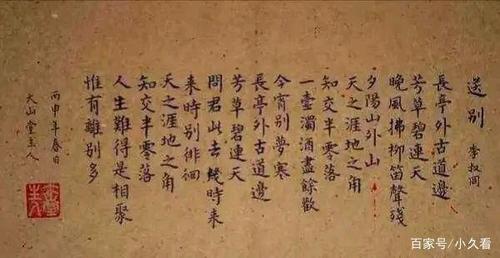 送別
李叔同
長亭外古道邊
芳草碧連天
晚風拂柳笛聲殘
夕陽山外山
天之涯地之角
知交半零落
一壺濁酒盡餘歡
今宵別夢寒
長亭外古道邊
芳草碧連天
問君此去幾時来
来時別徘徊
天之涯地之角
知交半零落
人生難得是相聚
惟有離別多
丙申年春日
大山堂主人
百家号/小久看